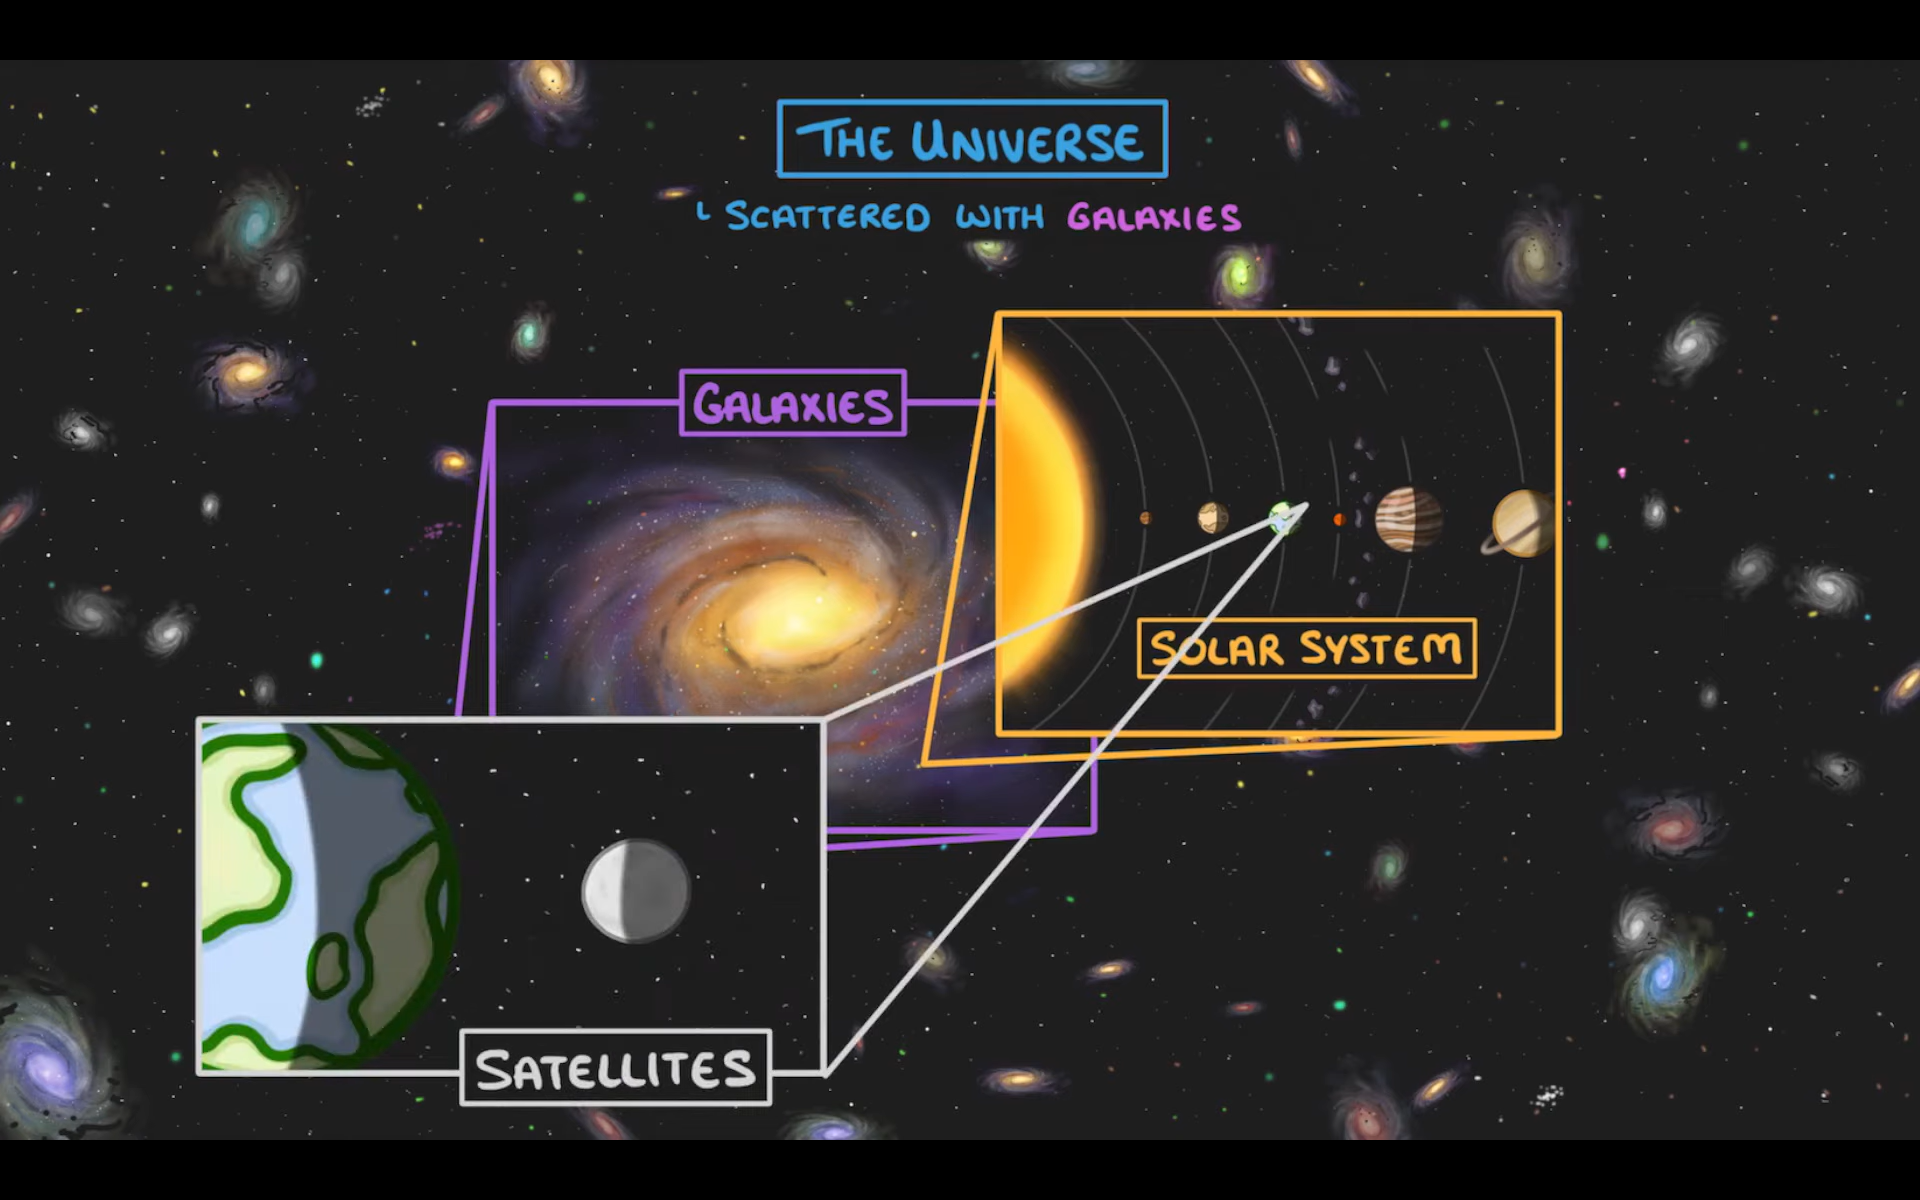 THE UNIVERSE
SCATTERED WITH GALAXIES
GALAXIES
SOLAR SYSTEM
SATELLITES